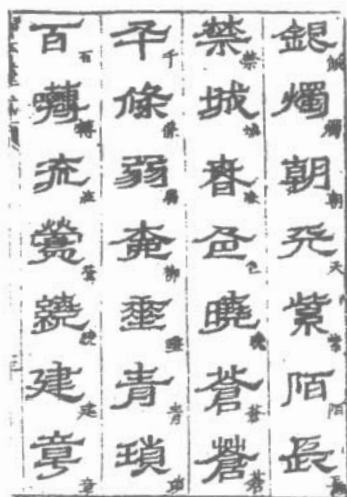 銀燭朝天紫陌長
銀燭朝天紫陌長
禁城春色曉蒼蒼
禁城春色曉蒼蒼
千條弱柳垂青瑣
千條弱柳垂青瑣
百囀流鶯繞建章
百囀流鶯繞建章